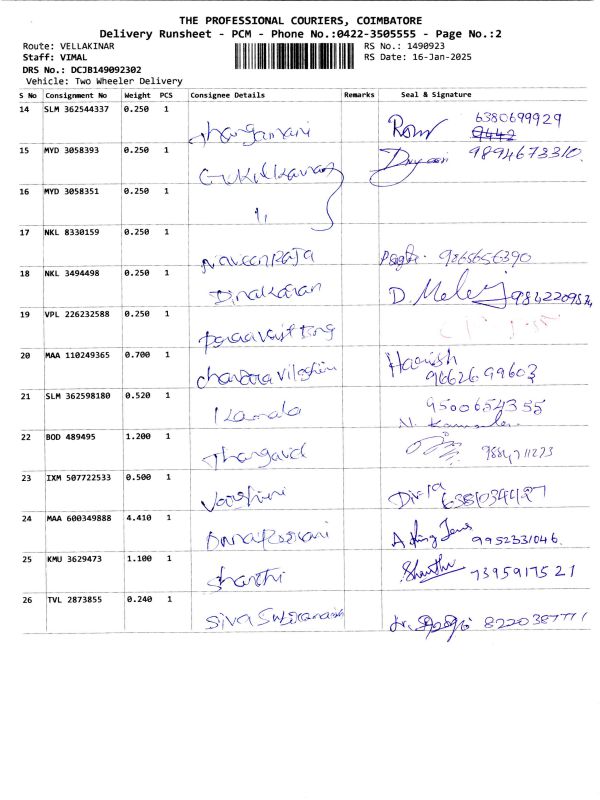 THE PROFESSIONAL COURIERS, COIMBATORE
Delivery Runsheet - PCM - Phone No.:0422-3505555 - Page No.:2
Route: VELLAKINAR RS No.: 1490923
Staff: VIMAL RS Date: 16-Jan-2025
DRS No.: DCJB149092302
Vehicle: Two Wheeler Delivery
S No Consignment No Weight PCS Consignee Details Remarks Seal & Signature
14 SLM 362544337 0.250 1
Thangamani 6380699929
15 MYD 3058393 0.250 1
9894673310
16 MYD 3058351 0.250 1
17 NKL 8330159 0.250 1
NaveenRaja 9865656390
18 NKL 3494498 0.250 1
Dinakaran
19 VPL 226232588 0.250 1
20 MAA 110249365 0.700 1
Harish
9662699603
21 SLM 362598180 0.520 1
Kamala 9500654355
22 BOD 489495 1.200 1
Thangavel
23 IXM 507722533 0.500 1
24 MAA 600349888 4.410 1
9952331046
25 KMU 3629473 1.100 1
Shanthi Shanthi 7395917521
26 TVL 2873855 0.240 1